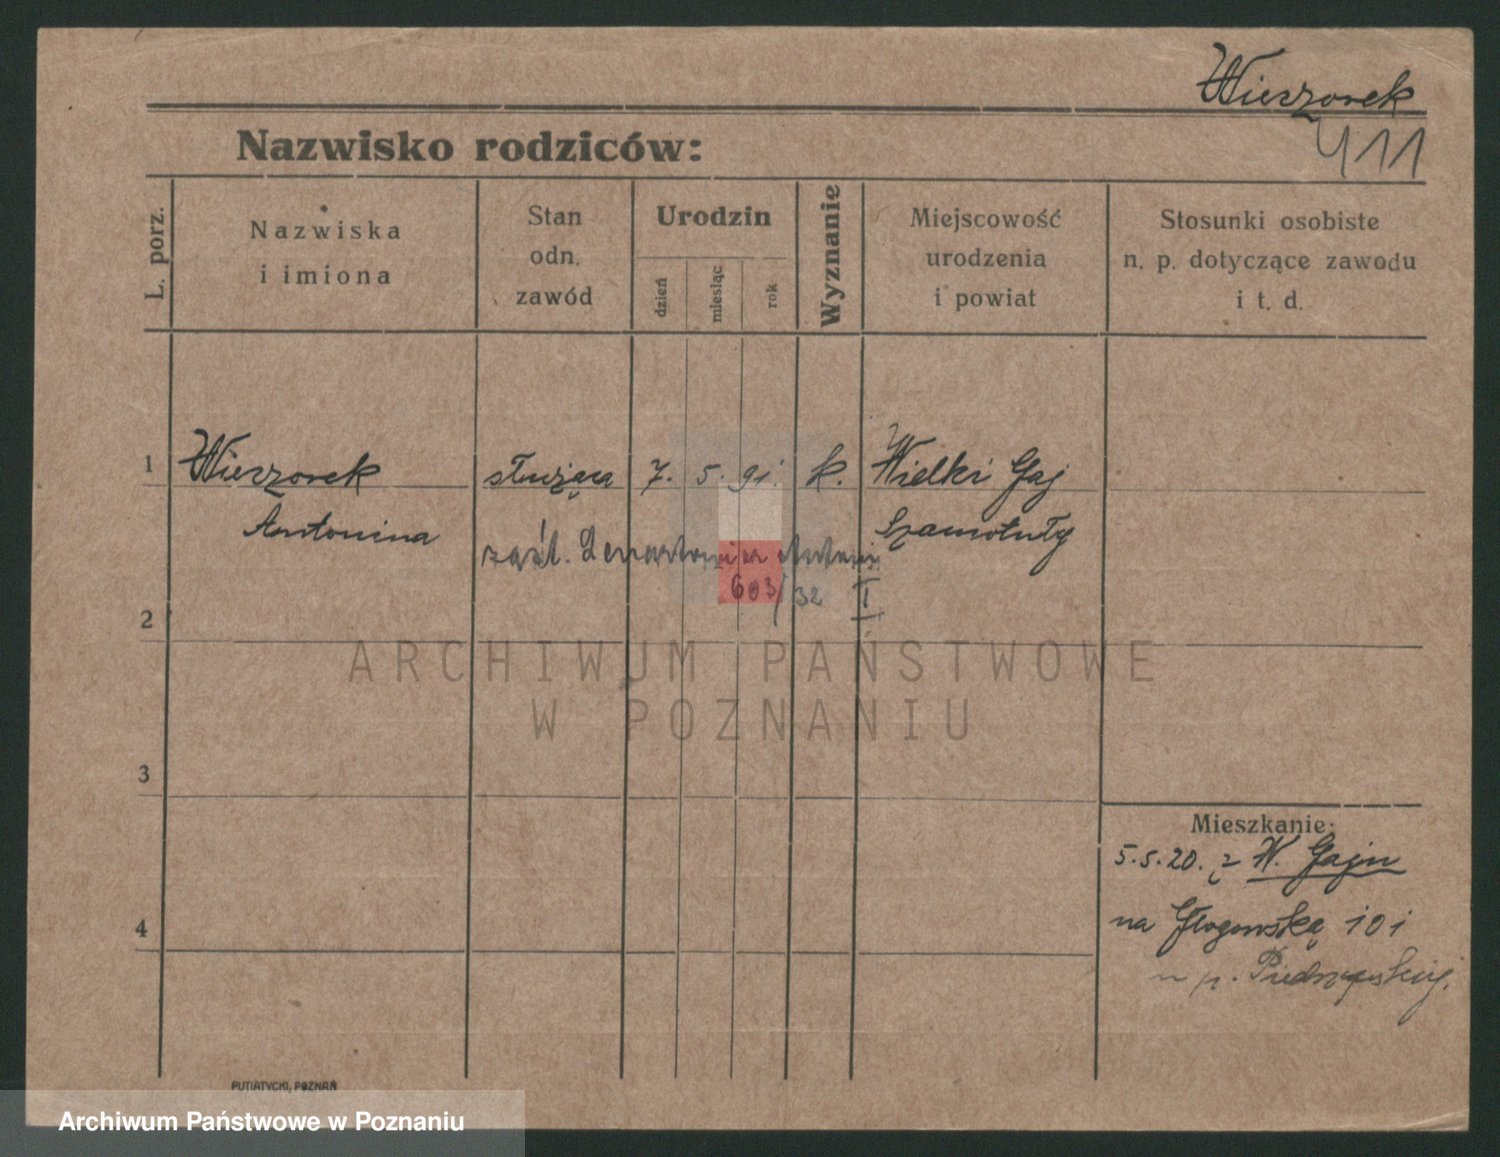 Wieszorek
411
Nazwisko rodziców:
L. porz.
Nazwiska
i imiona
Stan
odn.
zawód
Urodzin
dzień
miesiąc
rok
Wyznanie
Miejscowość
urodzenia
i powiat
Stosunki osobiste
n. p. dotyczące zawodu
i t. d.
1 Wieszorek służąca 7. 5. 91. k. Wielki Gaj
Antonina Szamotuły
zaśl.
603/32 I
2
ARCHIWUM PAŃSTWOWE
W POZNANIU
3
Mieszkanie:
5.5.20. z W. Gaju
na Głogowską 101
4
u p.
PUTIATYCKI, POZNAŃ
Archiwum Państwowe w Poznaniu